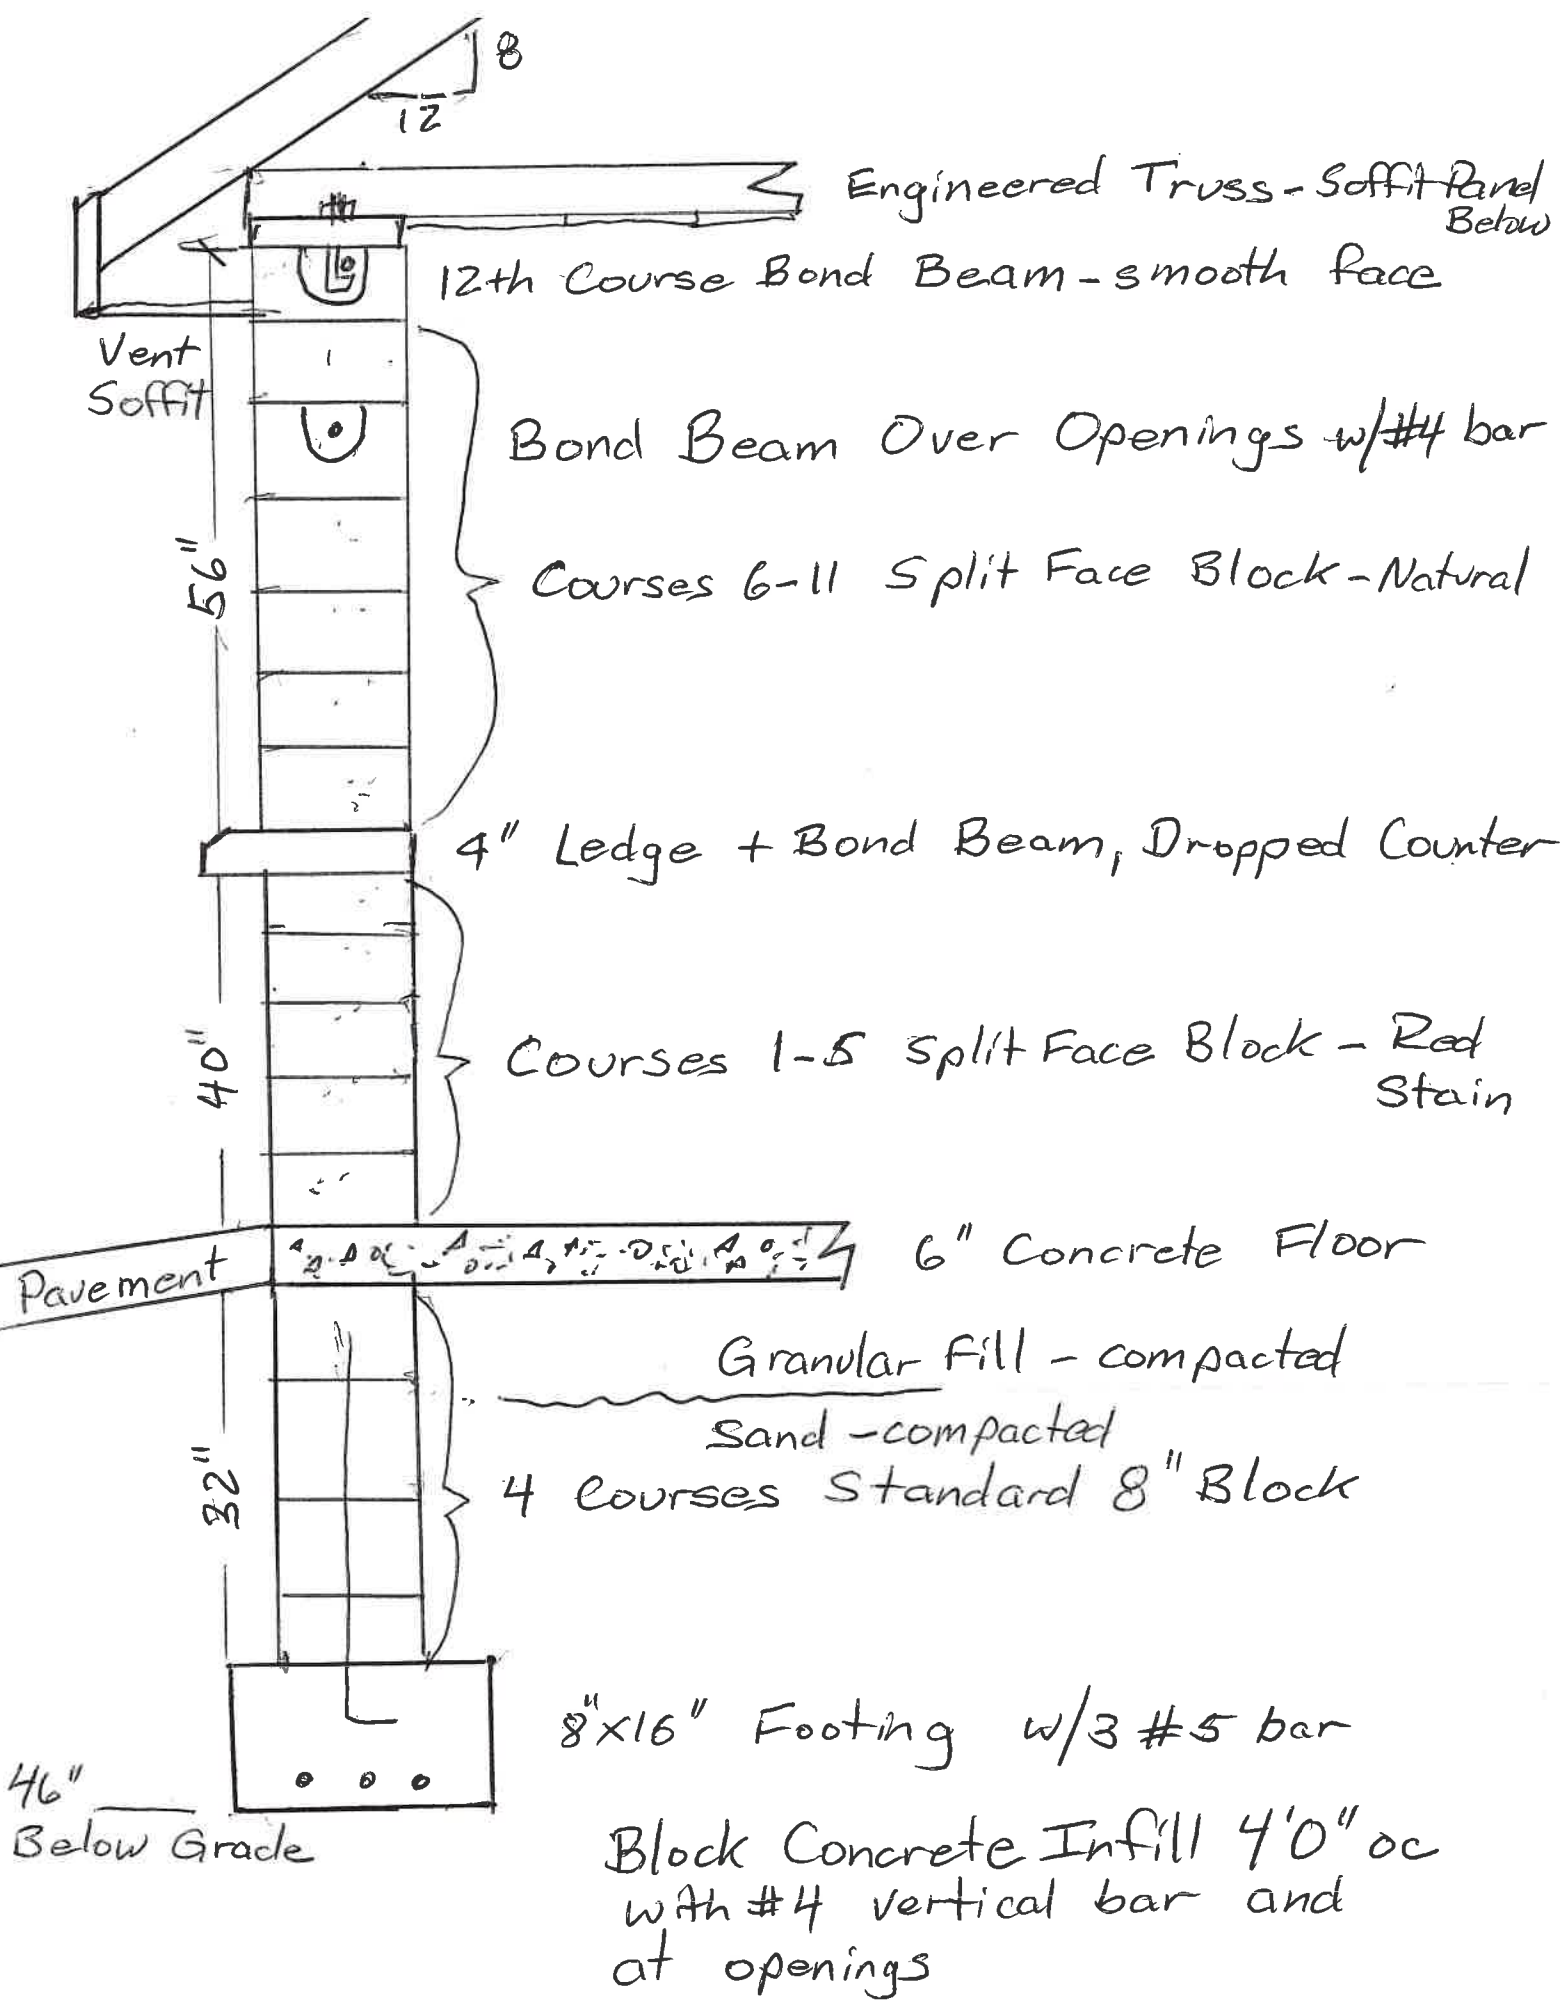 8
12
Engineered Truss - Soffit Panel
Below
12th Course Bond Beam - smooth face
Vent
Soffit
Bond Beam Over Openings w/#4 bar
56"
Courses 6-11 Split Face Block - Natural
4" Ledge + Bond Beam, Dropped Counter
40"
Courses 1-5 Split Face Block - Red
Stain
Pavement
6" Concrete Floor
Granular Fill - compacted
Sand - compacted
32"
4 Courses Standard 8" Block
8"x16" Footing w/3 #5 bar
46"
Below Grade
Block Concrete Infill 4'0" oc
with #4 vertical bar and
at openings